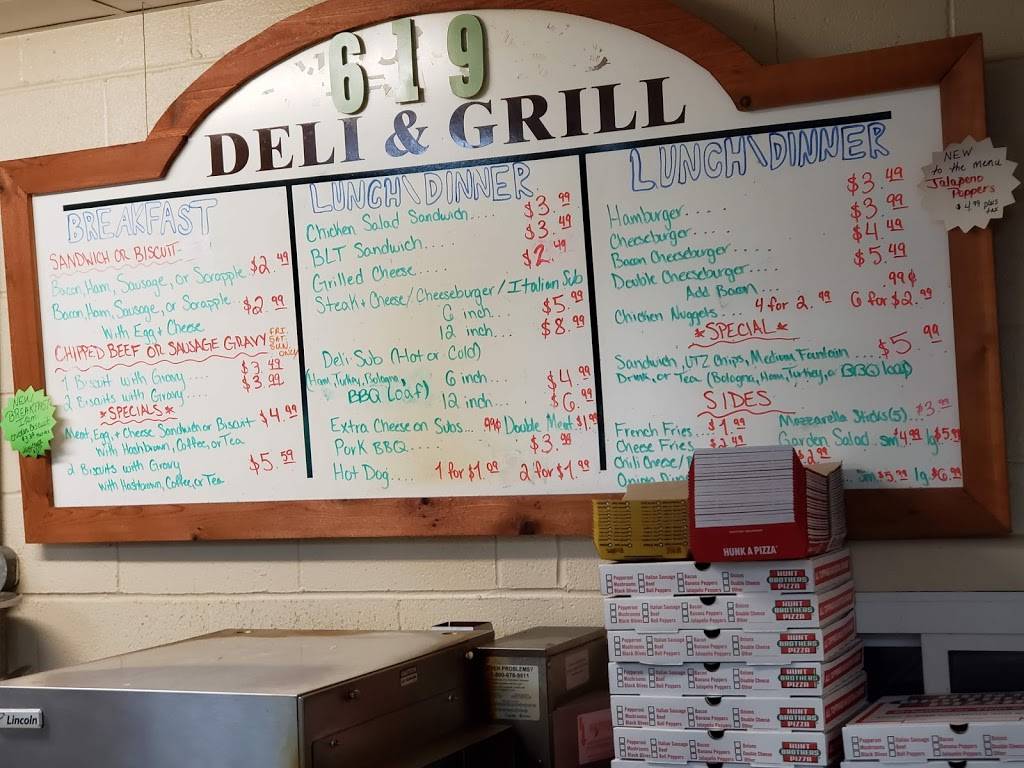 619
DELI & GRILL
BREAKFAST
SANDWICH OR BISCUIT
Bacon, Ham, Sausage, or Scrapple $2.49
Bacon, Ham, Sausage, or Scrapple... $2.99
With Egg + Cheese
CHIPPED BEEF OR SAUSAGE GRAVY FRI. SAT. SUN. ONLY
1 Biscuit with Gravy..... $3.49
2 Biscuits with Gravy..... $3.99
*SPECIALS*
Meat, Egg, + Cheese Sandwich or Biscuit $4.99
With Hashbrown, Coffee, or Tea
2 Biscuits with Gravy $5.59
with Hashbrown, Coffee, or Tea
NEW
BREAKFAST
Item
LUNCH\DINNER
Chicken Salad Sandwich..... $3.99
BLT Sandwich..... $3.49
Grilled Cheese..... $2.49
Steak + Cheese/Cheeseburger/Italian Sub
6 inch... $5.99
12 inch... $8.99
Deli Sub (Hot or Cold)
(Ham, Turkey, Bologna, 6 inch.... $4.99
BBQ Loaf) 12 inch... $6.99
Extra Cheese on Subs... 99¢ Double Meat. $1.99
Pork BBQ..... $3.99
Hot Dog.... 1 for $1.09 2 for $1.99
LUNCH\DINNER
Hamburger.... $3.49
Cheeseburger.... $3.99
Bacon Cheeseburger..... $4.49
Double Cheeseburger.... $5.49
Add Bacon.... .99¢
Chicken Nuggets... 4 for 2.49 6 for $2.99
*SPECIAL*
Sandwich, UTZ Chips, Medium Fountain... $5.99
Drink, or Tea (Bologna, Ham, Turkey, or BBQ loaf)
SIDES
French Fries.... $1.99 Mozzarella Sticks(5).. $3.99
Cheese Fries.... $2.49 Garden Salad.. sm $4.99 lg $5.99
Chili Cheese $2.99
Onion sm $5.99 lg. $6.99
NEW
to the menu
Jalapeno
Poppers
$4.99 plus
tax
HUNK A PIZZA
HUNT
BROTHERS
PIZZA
Pepperoni Italian Sausage Bacon Onions
Mushrooms Beef Banana Peppers Double Cheese
Black Olives Bell Peppers Jalapeño Peppers Other
HUNT
BROTHERS
PIZZA
Lincoln
PROBLEMS?